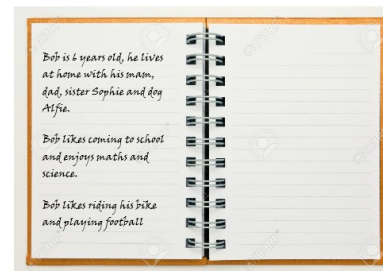 Bob is 6 years old, he lives
at home with his mam,
dad, sister Sophie and dog
Alfie.
Bob likes coming to school
and enjoys maths and
science.
Bob likes riding his bike
and playing football